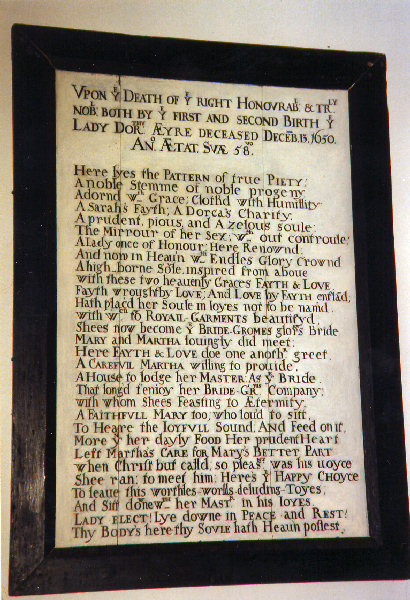 Vpon yᵉ Death of yᵉ right Honovrabˡ & trˡʸ
nobˡ both by yᵉ first and second Birth yᵉ
Lady Dorᵗʰʸ Æyre deceased Decēb. 13. 1650.
Anº Ætat. Svæ 58ᵗʰ
Here lyes the Pattern of true Piety;
A noble Stemme of noble progeny
Adornd wᵗʰ Grace; Cloth'd with Humillity
A Sarah's Fayth; A Dorca's Charity.
A prudent, pious, and A zelous soule;
The Mirrour of her Sex; wᵗʰ out controule;
A Lady once of Honour; Here Renownd;
And now in Heaun wᵗʰ Endles Glory Crownd
A high-borne Sole, inspired from aboue
with these two heauenly Graces Fayth & Love
Fayth wrought by Love; And Love by Fayth
Hath plac'd her Soule in Ioyes not to be nam'd
with wᶜʰ to Royall Garments beautify'd,
Shees now become yᵉ Bride-Gromes glo's Bride
Mary and Martha louingly did meet;
Here Fayth & Love doe one anothʳ greet.
A Carefvll Martha willing to prouide,
A House to lodge her Master: As yᵉ Bride
That long'd t'enioy her Bride-Grᵐˢ Company;
with whom Shees Feasting to Æternity.
A Faithfvll Mary too, who lou'd to sitt
To Heare the Ioyfvll Sound, And Feed on it,
More yⁿ her dayly Food Her prudent Heart
Left Martha's Care for Mary's Better Part
when Christ but call'd, so pleasᵗ was his uoyce
Shee ran; to meet him; Here's yᵉ Happy Choyce
To leaue this worthles-worlds-deluding-Toyes,
And Sitt downe wᵗʰ her Mastʳ in his Ioyes
Lady elect! Lye downe in Peace and Rest!
Thy Body's here thy Sovle hath Heaun possest.